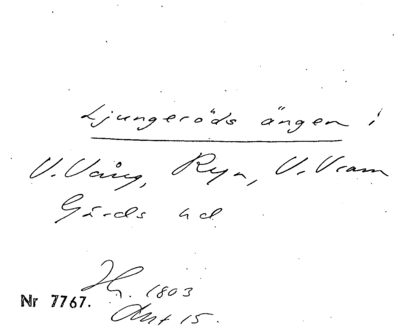 Ljungeröds ängen i
V. Vång, Ryn, V. Vram
Gärds hd
Nr 7767.
1803
Akt 15.